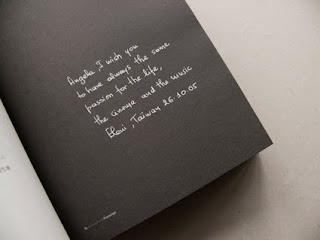 Angela, I wish you
to have always the same
passion for the life,
the cinema and the music
Taiwan 26.10.05